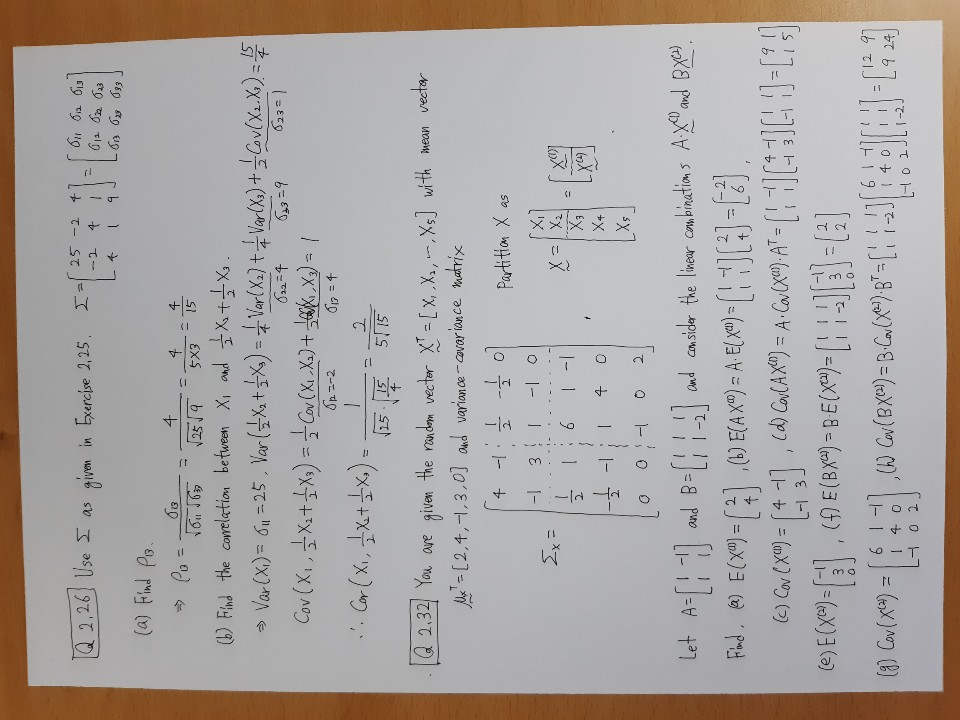 Q 2.26 Use Σ as given in Exercise 2.25. Σ = [25 -2 4; -2 4 1; 4 1 9] = [σ11 σ12 σ13; σ12 σ22 σ23; σ13 σ23 σ33]
(a) Find ρ13.
⇒ ρ13 = σ13/(√σ11 √σ33) = 4/(√25 √9) = 4/(5×3) = 4/15
(b) Find the correlation between X1 and 1/2 X2 + 1/2 X3.
⇒ Var(X1) = σ11 = 25, Var(1/2 X2 + 1/2 X3) = 1/4 Var(X2) + 1/4 Var(X3) + 1/2 Cov(X2, X3) = 15/4
σ22=4 σ33=9 σ23=1
Cov(X1, 1/2 X2 + 1/2 X3) = 1/2 Cov(X1, X2) + 1/2 Cov(X1, X3) = 1
σ12=-2 σ13=4
∴ Cor(X1, 1/2 X2 + 1/2 X3) = 1/(√25 · √(15/4)) = 2/(5√15)
Q 2.32 You are given the random vector X^T = [X1, X2, ..., X5] with mean vector
μx^T = [2, 4, -1, 3, 0] and variance-covariance matrix
Σx = [4 -1 1/2 -1/2 0; -1 3 1 -1 0; 1/2 1 6 1 -1; -1/2 -1 1 4 0; 0 0 -1 0 2],
Partition X as
X = [X1; X2; X3; X4; X5] = [X^(1); X^(2)].
Let A = [1 -1; 1 1] and B = [1 1 1; 1 1 -2] and consider the linear combinations A·X^(1) and BX^(2).
Find. (a) E(X^(1)) = [2; 4], (b) E(AX^(1)) = A·E(X^(1)) = [1 -1; 1 1][2; 4] = [-2; 6],
(c) Cov(X^(1)) = [4 -1; -1 3], (d) Cov(AX^(1)) = A·Cov(X^(1))·A^T = [1 -1; 1 1][4 -1; -1 3][1 1; -1 1] = [9 1; 1 5]
(e) E(X^(2)) = [-1; 3; 0], (f) E(BX^(2)) = B·E(X^(2)) = [1 1 1; 1 1 -2][-1; 3; 0] = [2; 2]
(g) Cov(X^(2)) = [6 1 -1; 1 4 0; -1 0 2], (h) Cov(BX^(2)) = B·Cov(X^(2))·B^T = [1 1 1; 1 1 -2][6 1 -1; 1 4 0; -1 0 2][1 1; 1 1; 1 -2] = [12 9; 9 24]